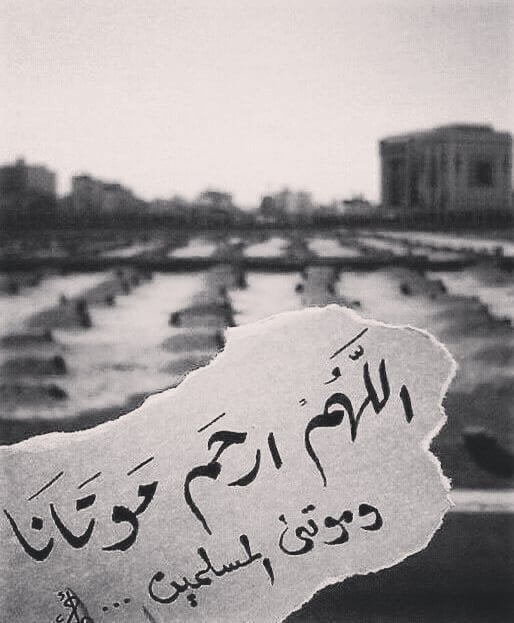 اللَّهُمَّ ارحَم مَوتَانَا
وموتى المسلمين ...